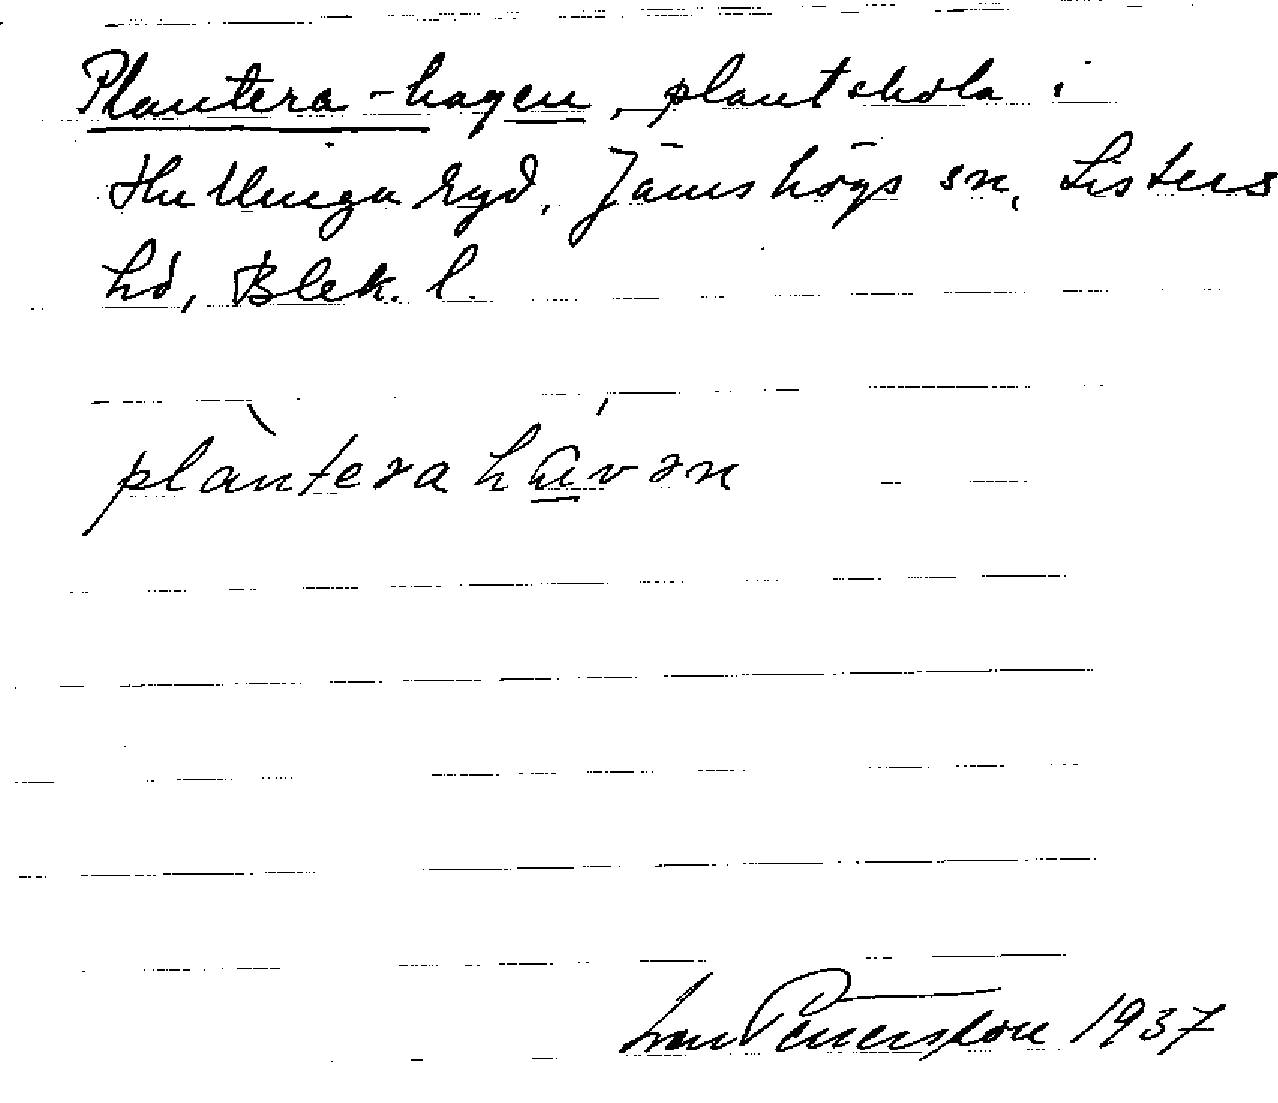 Plantera-hagen, plantskola i
Hullingaryd, Jämshögs sn, Listers
hd, Blek. l.
plàntera hávən
Pettersson 1937